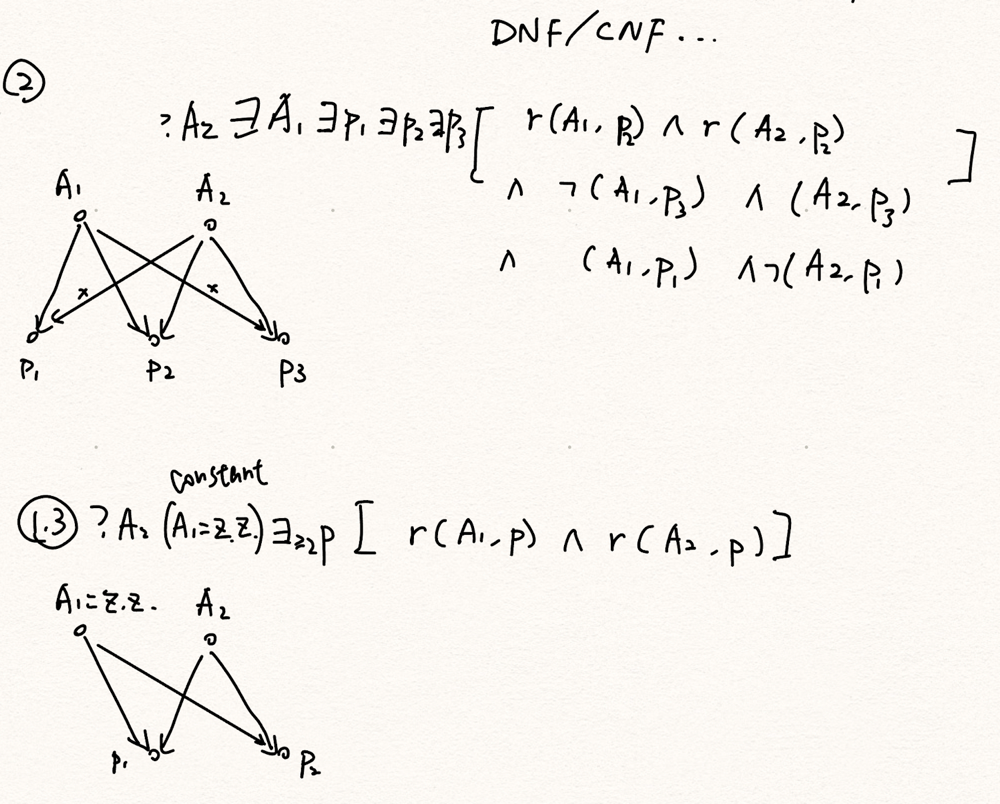 DNF/CNF...
②
?A₂ ∃A₁ ∃p₁ ∃p₂ ∃p₃ [ r(A₁, p₂) ∧ r(A₂, p₂) ]
∧ ¬(A₁, p₃) ∧ (A₂, p₃)
∧ (A₁, p₁) ∧ ¬(A₂, p₁)
A₁ A₂
x x
P₁ P2 P3
constant
(1.3) ?A₂ (A₁=z.z.) ∃≥2p [ r(A₁, p) ∧ r(A₂, p) ]
A₁=z.z. A₂
p₁ P₂